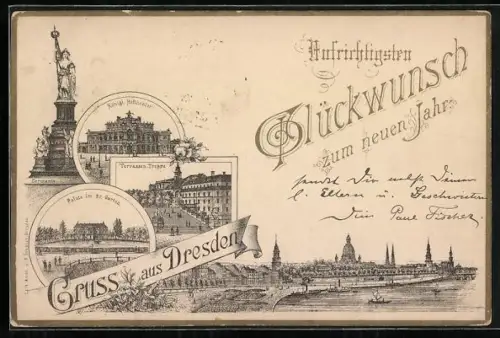 Aufrichtigsten
Glückwunsch
zum neuen Jahr
sendet Dir nebst Deinen
l. Eltern u. Geschwistern
Dein Paul Fischer
Königl. Hoftheater
Germania
Terrassen Treppe
Palais im Gr. Garten
Gruss aus Dresden